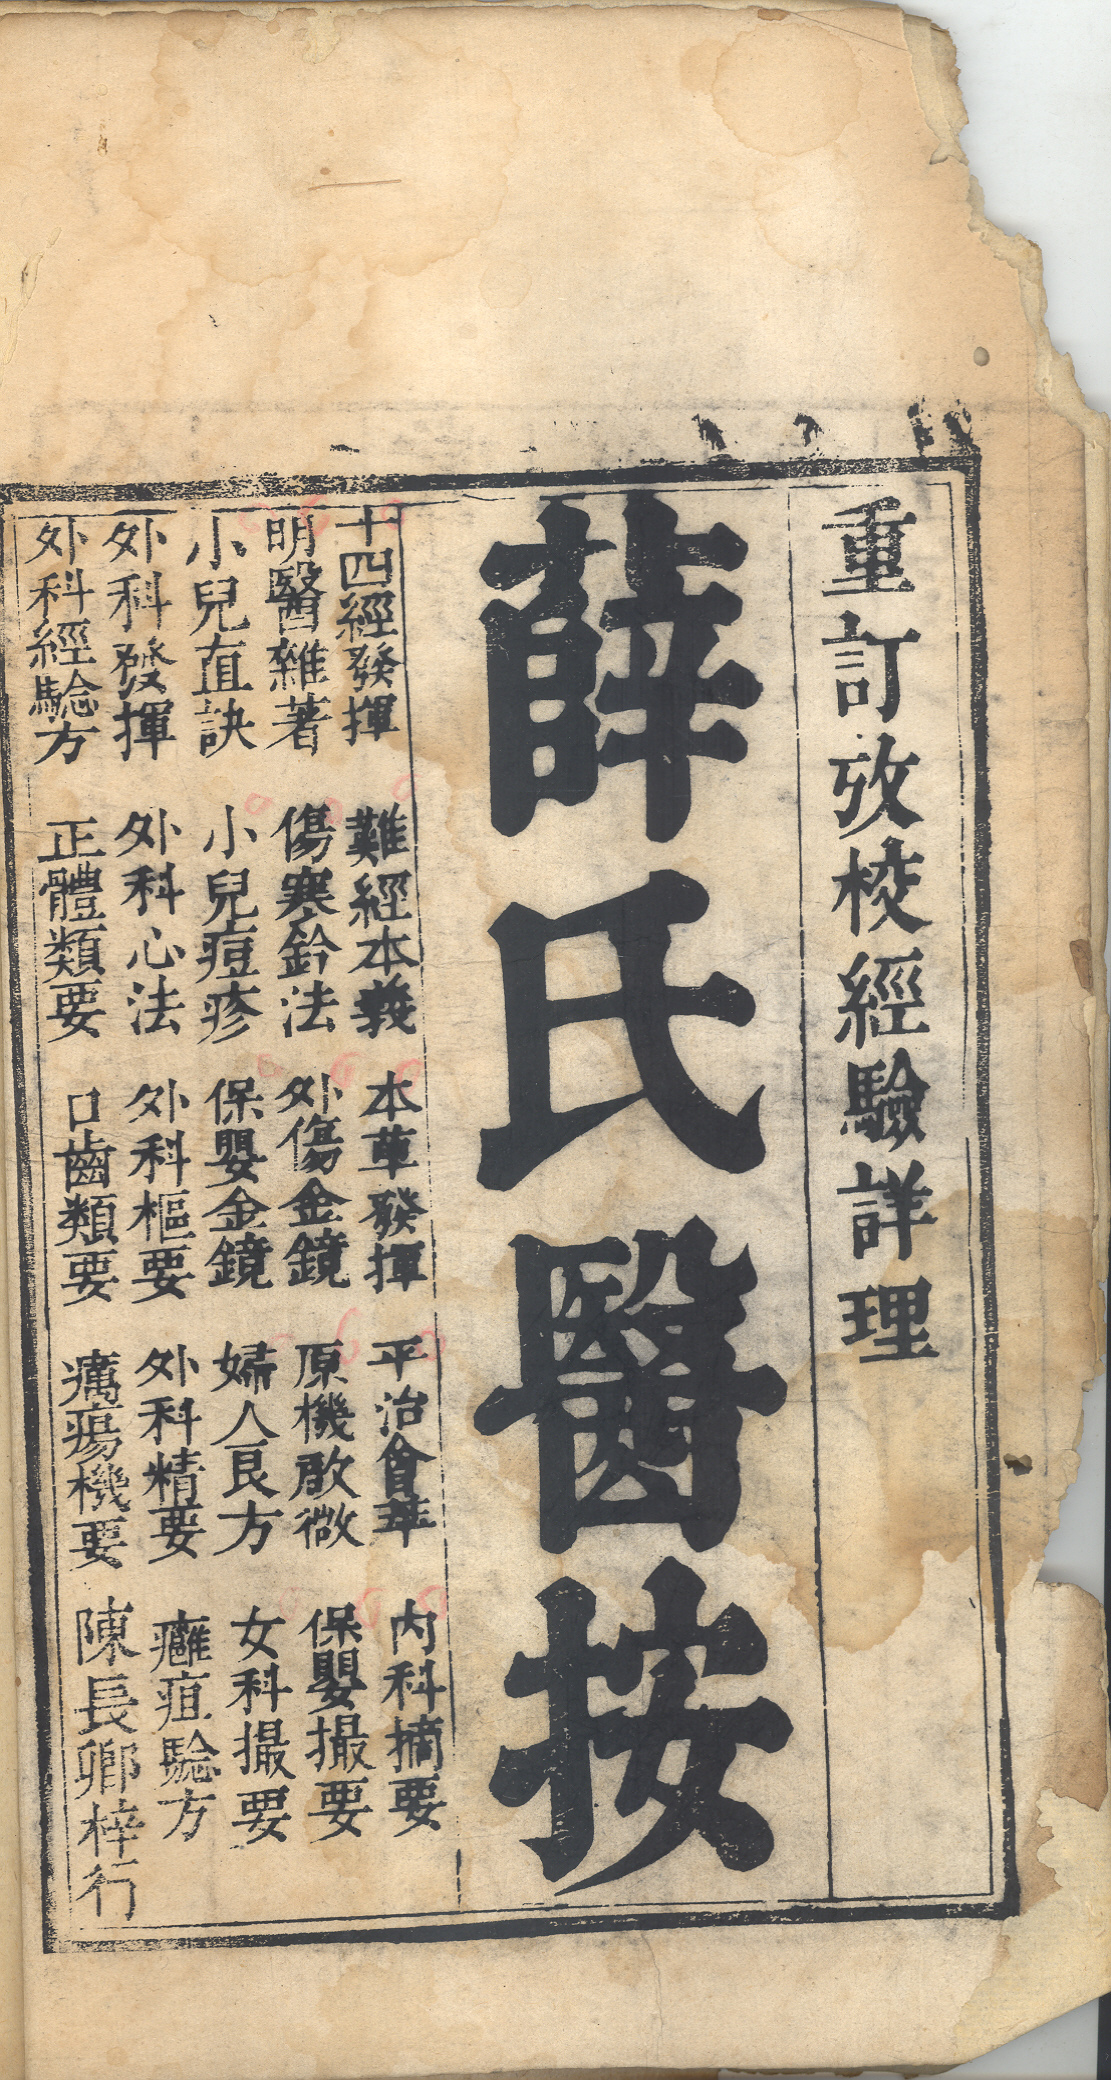 重訂攷校經驗詳理
薛氏醫按
十四經發揮 難經本義 本草發揮 平治會萃 內科摘要
明醫雜著 傷寒鈐法 外傷金鏡 原機啟微 保嬰撮要
小兒直訣 小兒痘疹 保嬰金鏡 婦人良方 女科撮要
外科發揮 外科心法 外科樞要 外科精要 癰疽驗方
外科經驗方 正體類要 口齒類要 癘瘍機要 陳長卿梓行